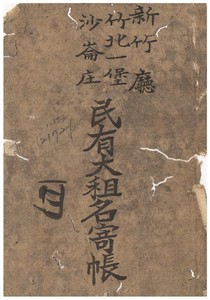 新竹廳
竹北一堡
沙崙庄
民有大租名寄帳